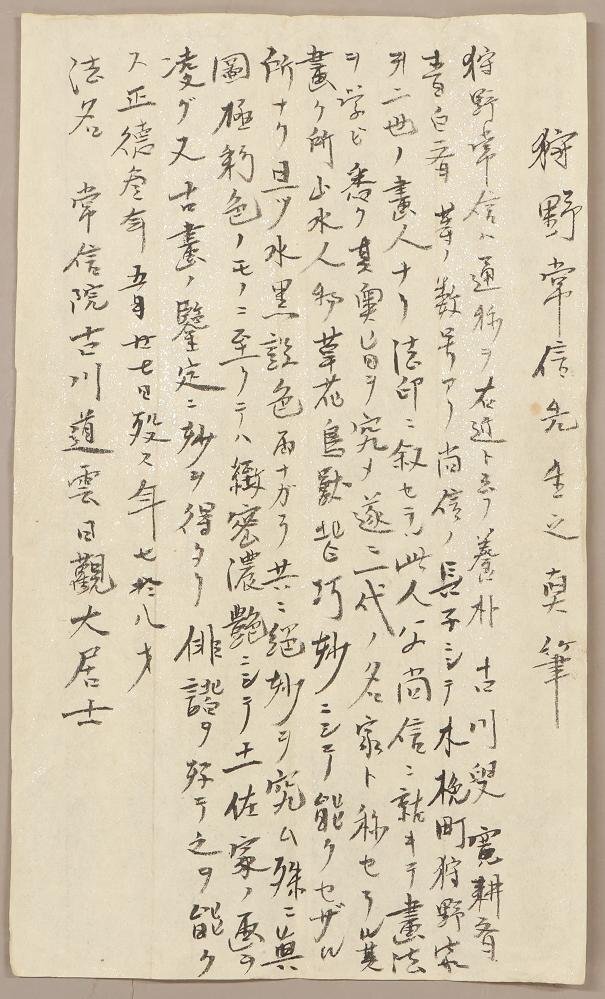 狩野常信先生之真筆
狩野常信ハ通称ヲ右近ト云フ養朴 古川叟 寛耕斎
青白斎 等ノ数号アリ尚信ノ長子ニシテ木挽町狩野家
第二世ノ畫人ナリ法印ニ叙セラル此人父尚信ニ就キテ畫法
ヲ学ビ悉ク其奥旨ヲ究メ遂ニ一代ノ名家ト称セラル其
畫ク所山水人物草花鳥獣皆巧妙ニシテ能クセザル
所ナク且ツ水墨設色両ナガラ共ニ絶妙ヲ究ム殊ニ真
圖極彩色ノモノニ至リテハ緻密濃艶ニシテ土佐家ノ
凌グ又古畫ノ鑒定ニ妙ヲ得タリ俳諧ヲ好テ之ヲ能ク
ス正徳叁年五月廿七日歿ス年七拾八才
法名 常信院古川道雲日觀大居士